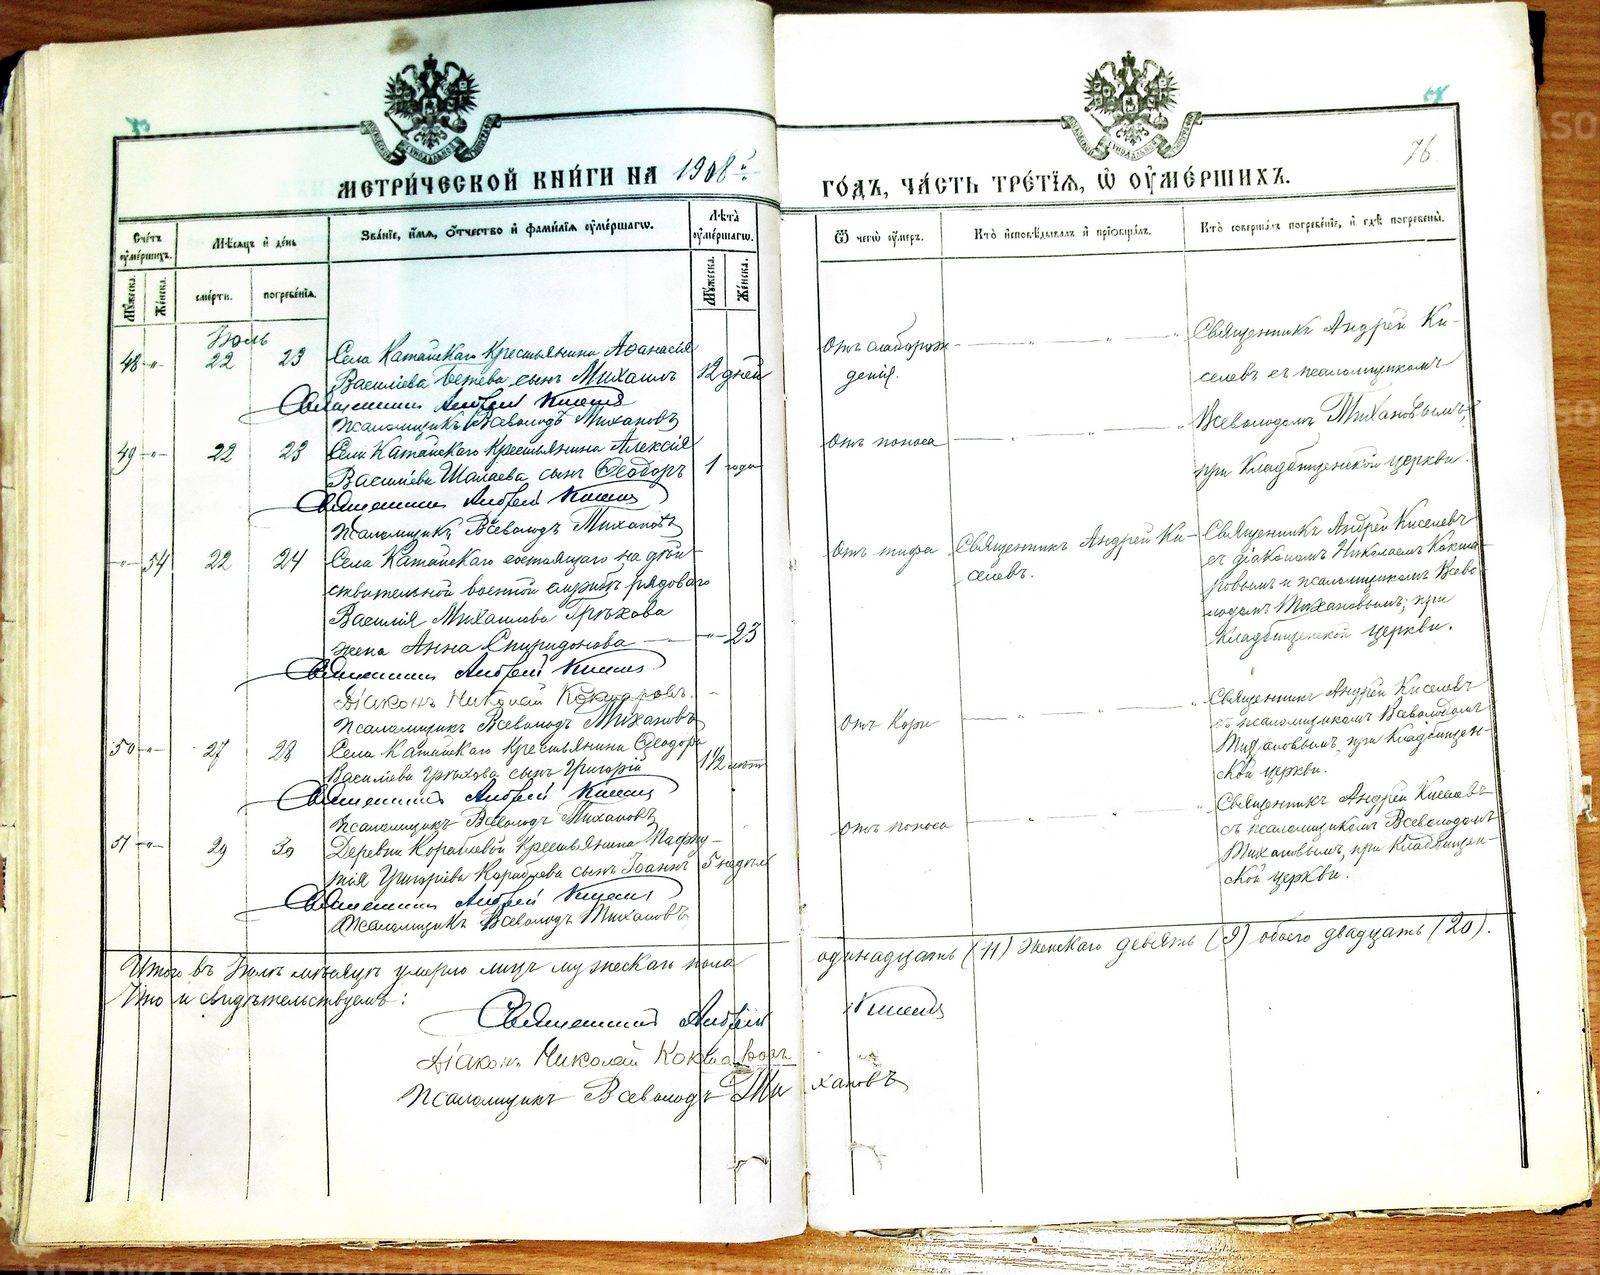 МЕТРИ́ЧЕСКОЙ КНИ́ГИ НА 1908й
ГО́ДЪ, ЧА́СТЬ ТРЕ́ТІѦ, Ѡ ОУ҆МЕ́РШИХЪ.
76
Сче́тъ оу҆ме́ршихъ.
Мѣ́сѧцъ и҆ де́нь
Зва́нїе, и҆́мѧ, ѻ҆́тчество и҆ фами́лїѧ оу҆ме́ршагѡ.
Лѣ́та оу҆ме́ршагѡ.
Мꙋ́жеска.
Же́нска.
сме́рти.
погребе́нїѧ.
Мꙋ́жеска.
Же́нска.
Ѿ чегѡ̀ оу҆́меръ.
Кто̀ и҆сповѣ́дывалъ и҆ прїѻбща́лъ.
Кто̀ соверша́лъ погребе́нїе, и҆ гдѣ̀ погребены̀.
Іюль
48 - " - 22 23 Села Катайскаго крестьянина Аѳанасія
Василіева сынъ Михаилъ 12 дней
Священникъ Андрей Киселевъ
Псаломщикъ Всеволодъ Тихановъ
Отъ слаборож-
денія.
Священникъ Андрей Ки-
селевъ съ псаломщикомъ
Всеволодомъ Тихановымъ,
при Кладбищенской церкви.
49 - " - 22 23 Села Катайскаго крестьянина Алексія
Василіева сынъ Ѳеодоръ 1 года
Священникъ Андрей Киселевъ
Псаломщикъ Всеволодъ Тихановъ
Отъ поноса
- " - 54 22 24 Села Катайскаго состоящаго на дѣй-
ствительной военной службѣ рядоваго
Василія Михаилова Грѣхова
жена Анна Спиридонова - " - 23
Священникъ Андрей Киселевъ
Діаконъ Николай Кокшаровъ.
Псаломщикъ Всеволодъ Тихановъ
Отъ тифа
Священникъ Андрей Ки-
селевъ.
Священникъ Андрей Киселевъ
съ діакономъ Николаемъ Кокша-
ровымъ и псаломщикомъ Всево-
лодомъ Тихановымъ, при
Кладбищенской церкви.
50 - " - 27 28 Села Катайскаго крестьянина Ѳеодора
Василіева Грѣхова сынъ Григорій 1 1/2 лѣтъ
Священникъ Андрей Киселевъ
Псаломщикъ Всеволодъ Тихановъ
Отъ Кори
Священникъ Андрей Киселевъ
съ псаломщикомъ Всеволодомъ
Тихановымъ, при Кладбищен-
ской церкви.
51 - " - 29 30 Деревни крестьянина Пафну-
тія Григоріева сынъ Іоаннъ 5 недѣль
Священникъ Андрей Киселевъ
Псаломщикъ Всеволодъ Тихановъ
Отъ поноса
Священникъ Андрей Киселевъ
съ псаломщикомъ Всеволодомъ
Тихановымъ, при Кладбищен-
ской церкви.
Итого въ Іюлѣ мѣсяцѣ умерло лицъ мужескаго пола одинадцать (11) женскаго девять (9) обоего двадцать (20).
Что и свидѣтельствуемъ:
Священникъ Андрей Киселевъ
Діаконъ Николай Кокшаровъ
Псаломщикъ Всеволодъ Тихановъ